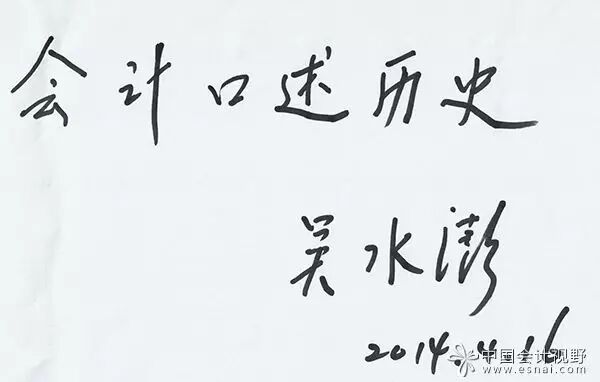 会计口述历史
吴水澎
2014.4.16
中国会计视野
www.esnai.com